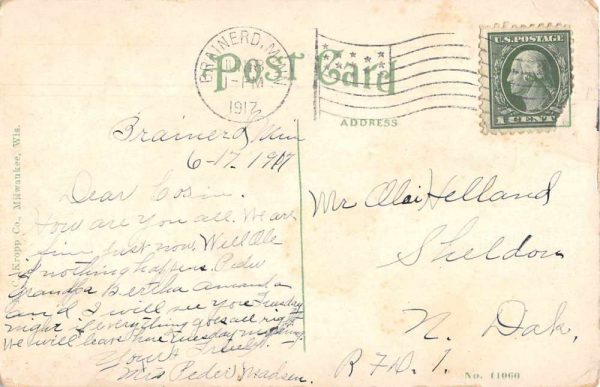 BRAINERD, MINN.
JUN 18
1917
Post Card
ADDRESS
U.S. POSTAGE
1 CENT
Brainerd Min
6-17. 1917
Dear Cosin.
How are you all. We are
fine just now. Well Ole
if nothing happens Peder
Grandpa Bertha Amanda
and I will see you Tuesday
night if everything goes all right
We will leave here Tuesday morning.
Yours Truly.
Mrs Peder Madsen.
Mr Ole Helland
Sheldon
N. Dak.
R F D. 1.
Kropp Co., Milwaukee, Wis.
No. 11060